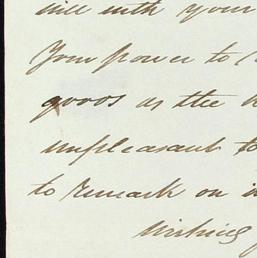 will with your
Your power to
good as the
unpleasant to
to remark on
Wishing